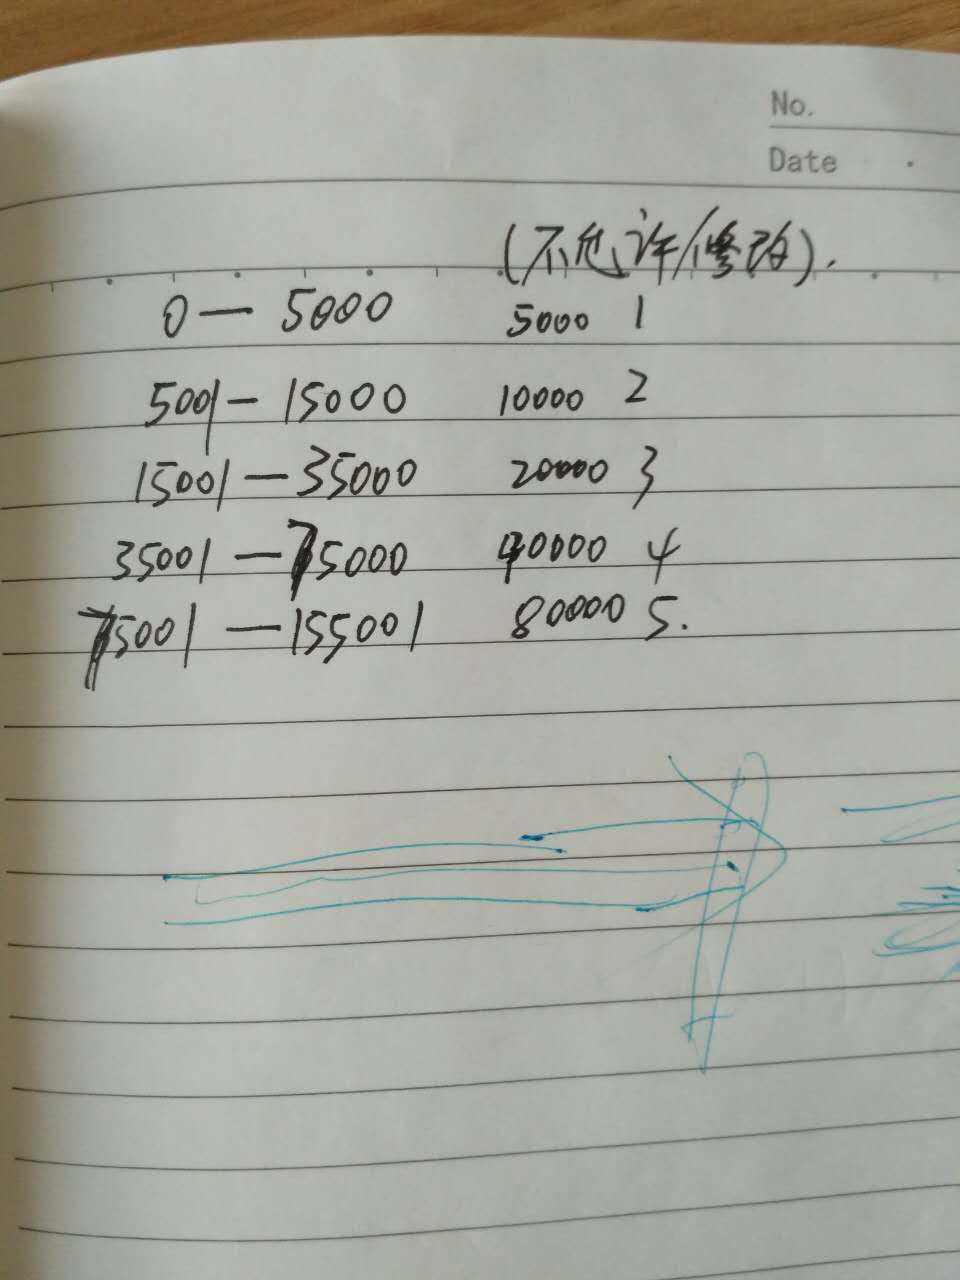 No.
Date
(不允许修改).
0 — 5000 5000 1
5001 — 15000 10000 2
15001 — 35000 20000 3
35001 — 75000 40000 4
75001 — 155001 80000 5.